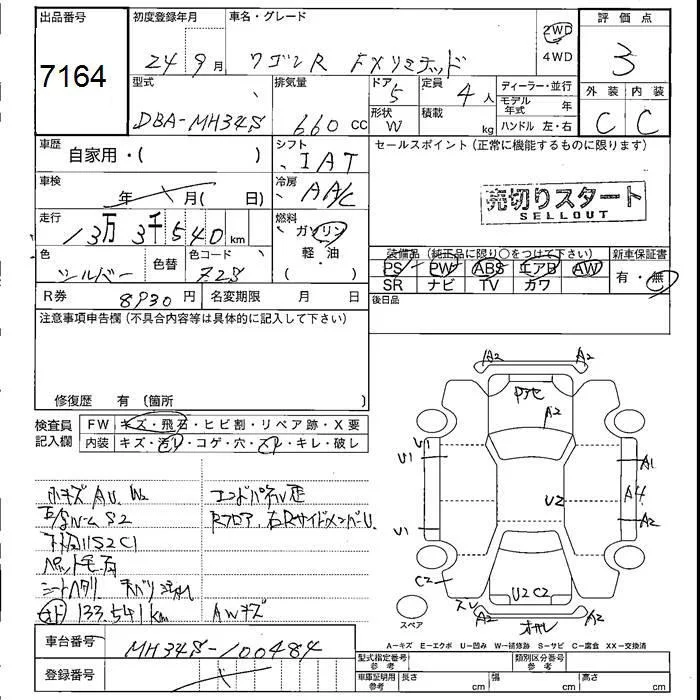 出品番号 初度登録年月 車名・グレード 評価点
7164 24 9月 ワゴンR FXリミテッド 2WD 4WD 3
型式 排気量 ドア 定員 ディーラー・並行 外装 内装
DBA-MH34S 660 cc 5 4人 モデル年式 年 C C
形状 積載 ハンドル 左・右
W kg
車歴 自家用・( ) シフト IAT セールスポイント(正常に機能するものに限ります)
車検 年 月( 日) 冷房 AAC
売切りスタート
SELLOUT
走行 13万3千540km 燃料 ガソリン・軽・油
装備品(純正品に限り○をつけて下さい) 新車保証書
色 シルバー 色替 色コード Z2S
PS PW ABS エアB AW 有・無
SR ナビ TV カワ
R券 8930円 名変期限 月 日 後日品
注意事項申告欄(不具合内容等は具体的に記入して下さい)
修復歴 有(箇所
検査員記入欄 FW キズ・飛石・ヒビ割・リペア跡・X要
内装 キズ・汚レ・コゲ・穴・スレ・キレ・破レ
小キズ AU W2 エンドパネル歪
S2 Rフロア、右RサイドメンバーU
下廻リS2C1
ペット毛有
シートヘタリ
オド 133.541km AWキズ
A2 A2
A2
U1 U1 A1
U2 A4
U1 A2
C2 U2 C2
スレ A2 A2
スペア
A-キズ E-エクボ U-凹み W-補修跡 S-サビ C-腐食 XX-交換済
車台番号 MH34S-100484
型式指定番号参考 類別区分番号参考
登録番号
車庫証明用参考 長さ cm 幅 cm 高さ cm